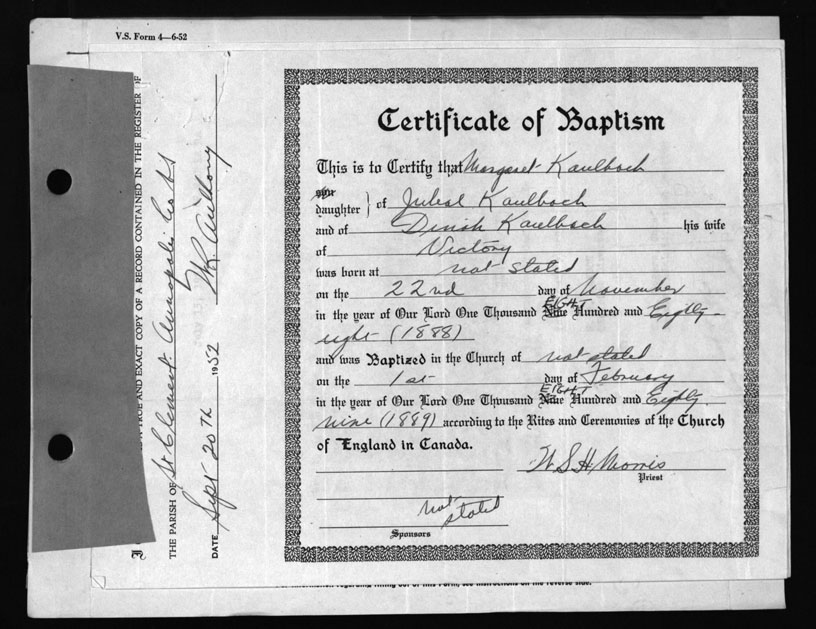 V.S. Form 4—6-52
AND EXACT COPY OF A RECORD CONTAINED IN THE REGISTER OF
THE PARISH OF St Clement. Annapolis Co NS
DATE Sept 20th 1952
Certificate of Baptism
This is to Certify that Margaret Kaulbach
son
daughter } of Jubal Kaulbach
and of Dinah Kaulbach his wife
of Victory
was born at not stated
on the 22nd day of November
EIGHT
in the year of Our Lord One Thousand Nine Hundred and Eighty-
eight (1888)
and was Baptized in the Church of not stated
on the 1st day of February
EIGHT
in the year of Our Lord One Thousand Nine Hundred and Eighty
nine (1889) according to the Rites and Ceremonies of the Church
of England in Canada.
W S H Morris
Priest
not
stated
Sponsors